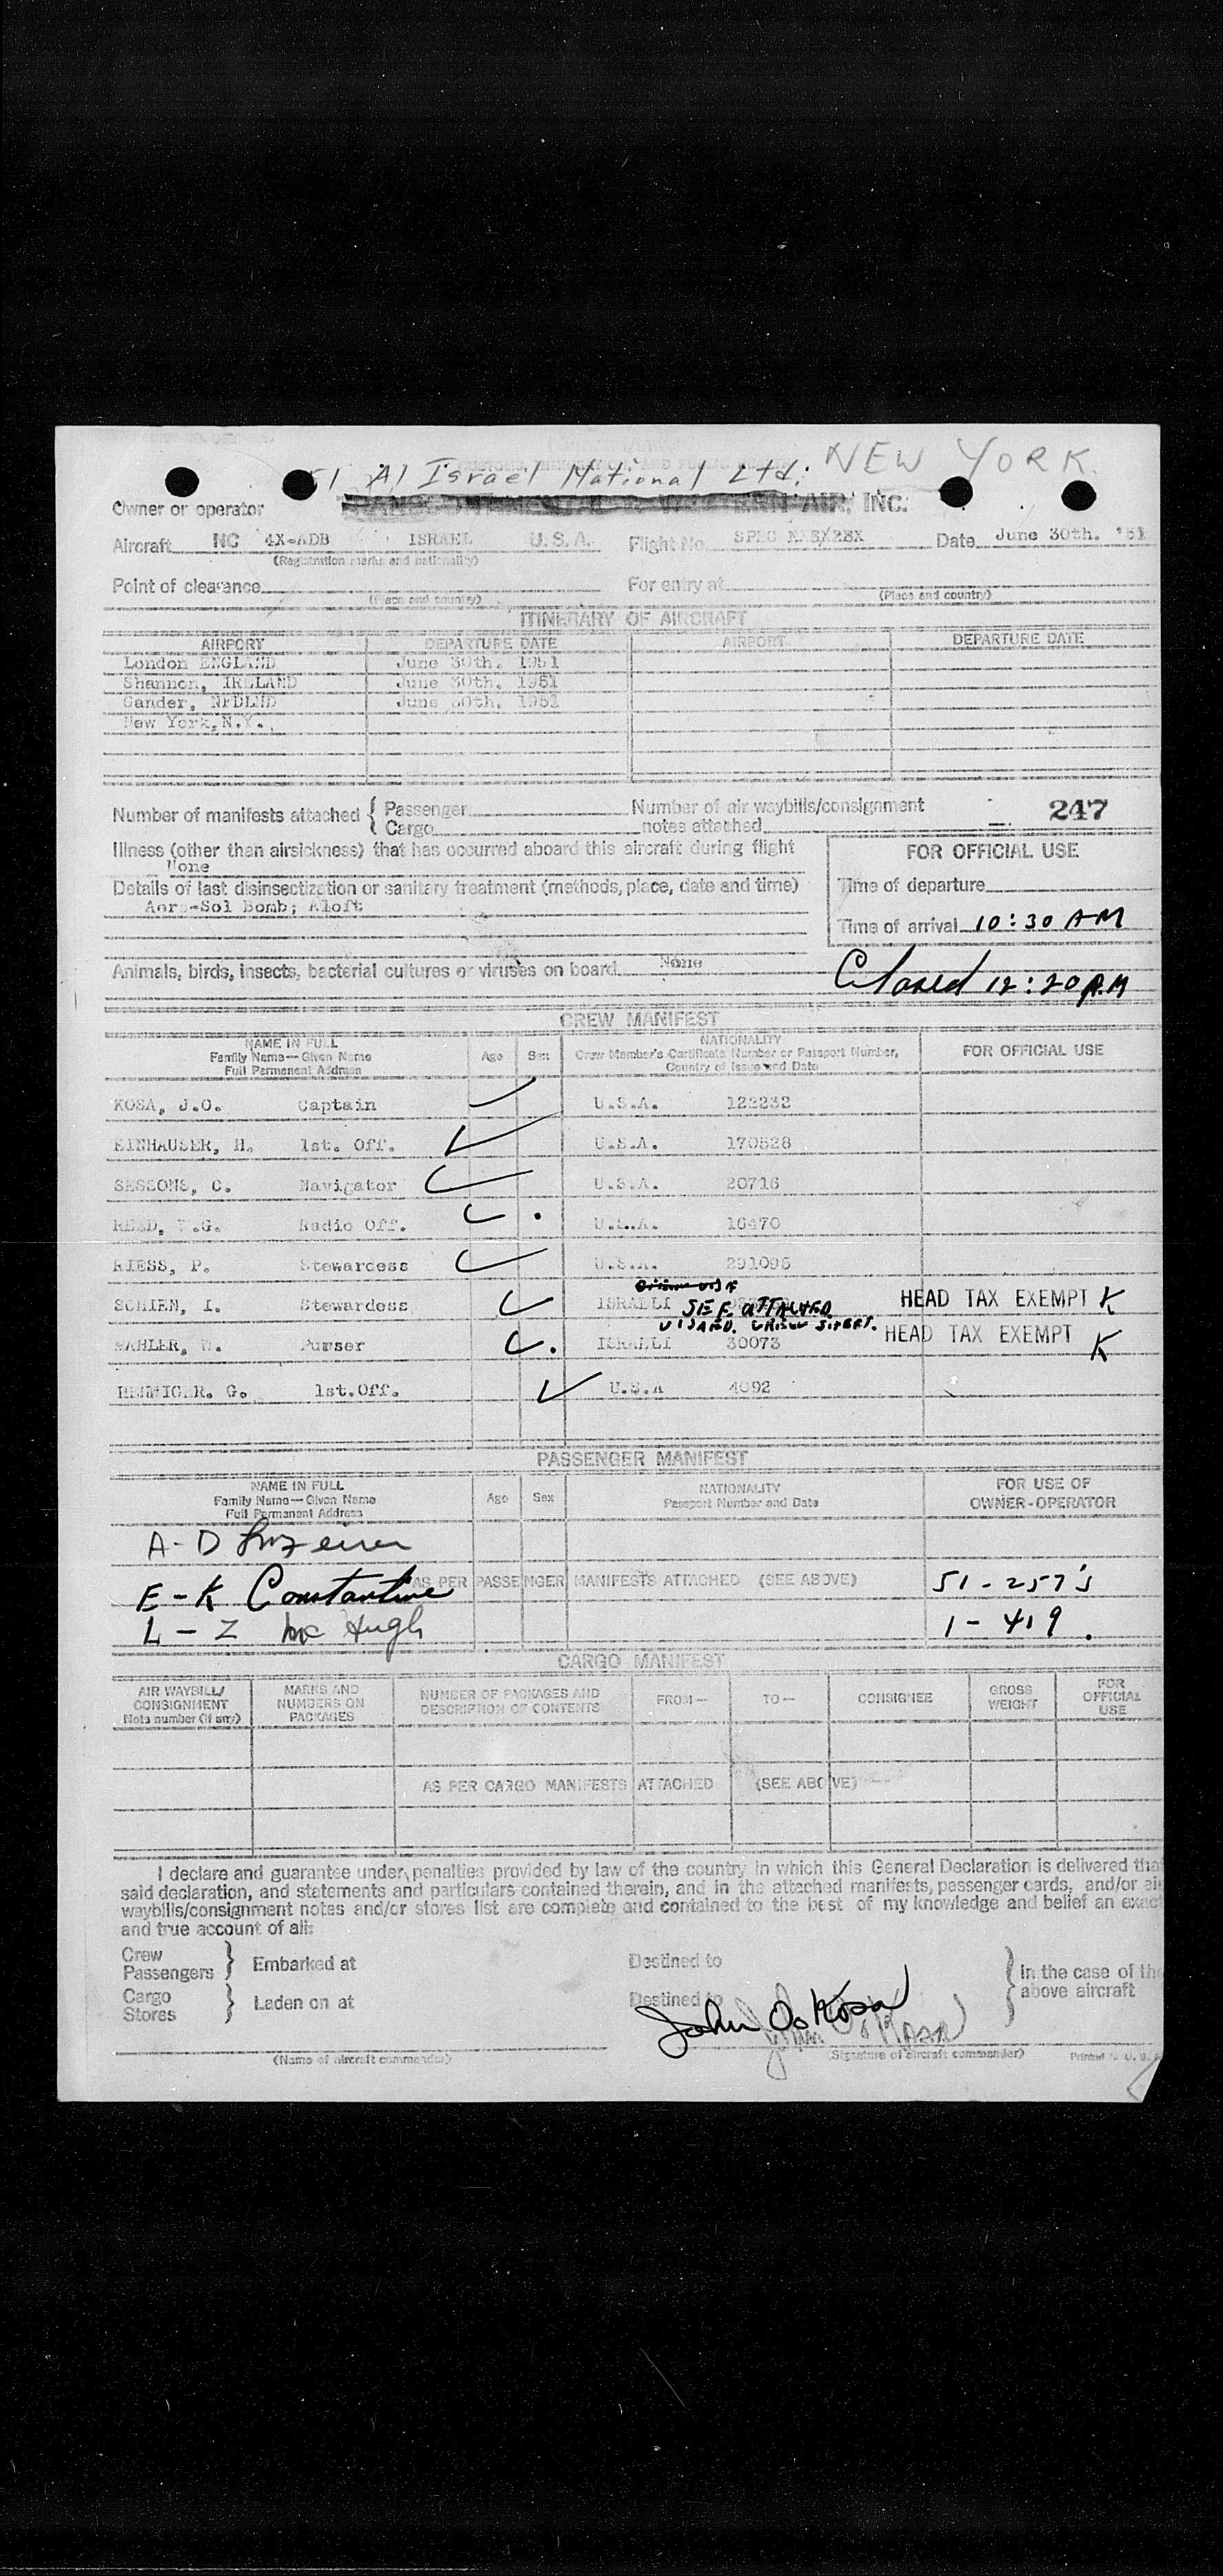 NEW YORK.
Al Israel National Ltd.
Owner or operator AIR, INC.
Aircraft NC 4X-ADB ISRAEL U.S.A. Flight No. SPEC Date June 30th. '51
(Registration marks and nationality)
Point of clearance For entry at
(Place and country) (Place and country)
ITINERARY OF AIRCRAFT
AIRPORT DEPARTURE DATE AIRPORT DEPARTURE DATE
London ENGLAND June 30th. 1951
Shannon, IRELAND June 30th. 1951
Gander, NFDLND June 30th. 1951
New York, N.Y.
Number of manifests attached { Passenger Number of air waybills/consignment 247
Cargo notes attached
Illness (other than airsickness) that has occurred aboard this aircraft during flight FOR OFFICIAL USE
None
Details of last disinsectization or sanitary treatment (methods, place, date and time) Time of departure
Aero-Sol Bomb; Aloft
Time of arrival 10:30 AM
Animals, birds, insects, bacterial cultures or viruses on board None
Closed 12:20 P.M
CREW MANIFEST
NAME IN FULL
Family Name—Given Name
Full Permanent Address
Age Sex
NATIONALITY
Crew Member's Certificate Number or Passport Number,
Country of Issue and Date
FOR OFFICIAL USE
KOSA, J.O. Captain U.S.A. 122232
EINHAUSER, H. 1st. Off. U.S.A. 170528
SESSONS, C. Navigator U.S.A. 20716
REED, W.G. Radio Off. U.S.A. 16470
RIESS, P. Stewardess U.S.A. 291095
SCHIEN, I. Stewardess ISRAELI SEE ATTACHED HEAD TAX EXEMPT K
VISAED. CREW SHEET.
MAHLER, W. Purser ISRAELI 30073 HEAD TAX EXEMPT K
G. 1st.Off. U.S.A 4092
PASSENGER MANIFEST
NAME IN FULL
Family Name—Given Name
Full Permanent Address
Age Sex
NATIONALITY
Passport Number and Date
FOR USE OF
OWNER-OPERATOR
A-D
E-K Constantine AS PER PASSENGER MANIFESTS ATTACHED (SEE ABOVE) 51-257's
L-Z Mc Hugh 1-419.
CARGO MANIFEST
AIR WAYBILL/
CONSIGNMENT
Note number (if any)
MARKS AND
NUMBERS ON
PACKAGES
NUMBER OF PACKAGES AND
DESCRIPTION OF CONTENTS
FROM— TO— CONSIGNEE
GROSS
WEIGHT
FOR
OFFICIAL
USE
AS PER CARGO MANIFESTS ATTACHED (SEE ABOVE)
I declare and guarantee under penalties provided by law of the country in which this General Declaration is delivered that
said declaration, and statements and particulars contained therein, and in the attached manifests, passenger cards, and/or air
waybills/consignment notes and/or stores list are complete and contained to the best of my knowledge and belief an exact
and true account of all:
Crew
Passengers } Embarked at Destined to } In the case of the
Cargo
Stores } Laden on at Destined to above aircraft
John O. Kosa
(Name of aircraft commander) (Signature of aircraft commander) Printed